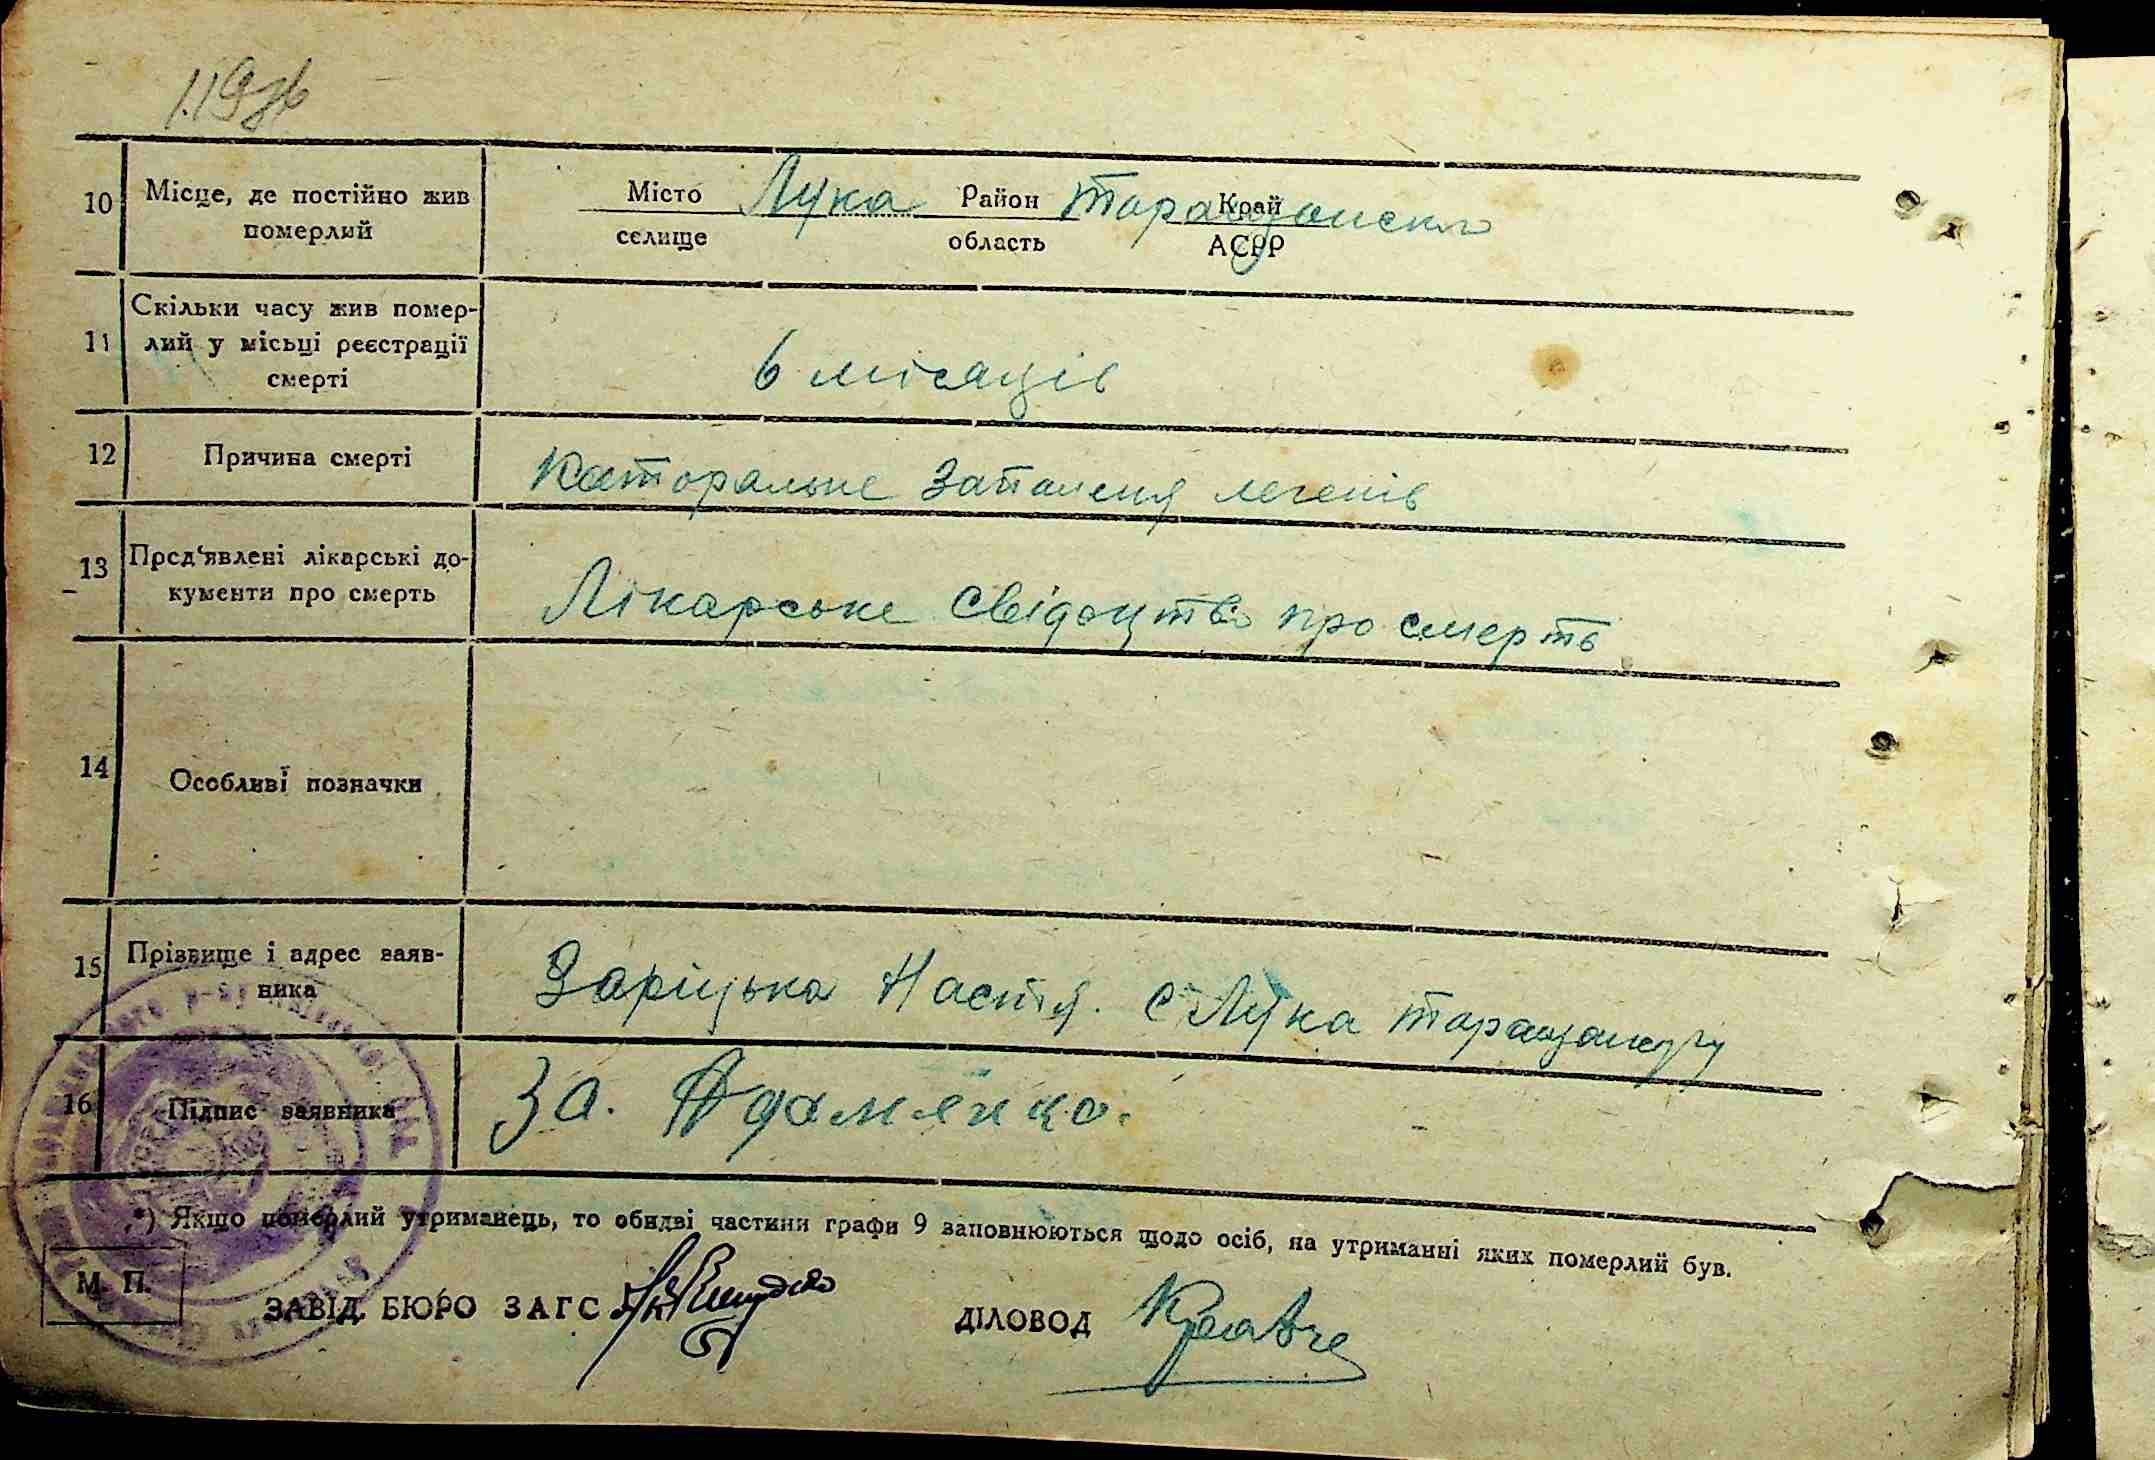 10 Місце, де постійно жив померлий
Місто Лука Район Таращанськ Край
селище область АСРР
11 Скільки часу жив помер-
лий у місьці реєстрації
смерті
6 місяців
12 Причина смерті
Каторальне запаленя легенів
13 Пред'явлені лікарські до-
кументи про смерть
Лікарське свідоцтво про смерть
14 Особливі позначки
15 Прізвище і адрес заяв-
ника
Заріцька Настя. с Лука Таращан
16 Підпис заявника
За. Адаменко.
*) Якщо померлий утриманець, то обидві частини графи 9 заповнюються щодо осіб, на утриманні яких померлий був.
М. П.
ЗАВІД. БЮРО ЗАГС
ДІЛОВОД